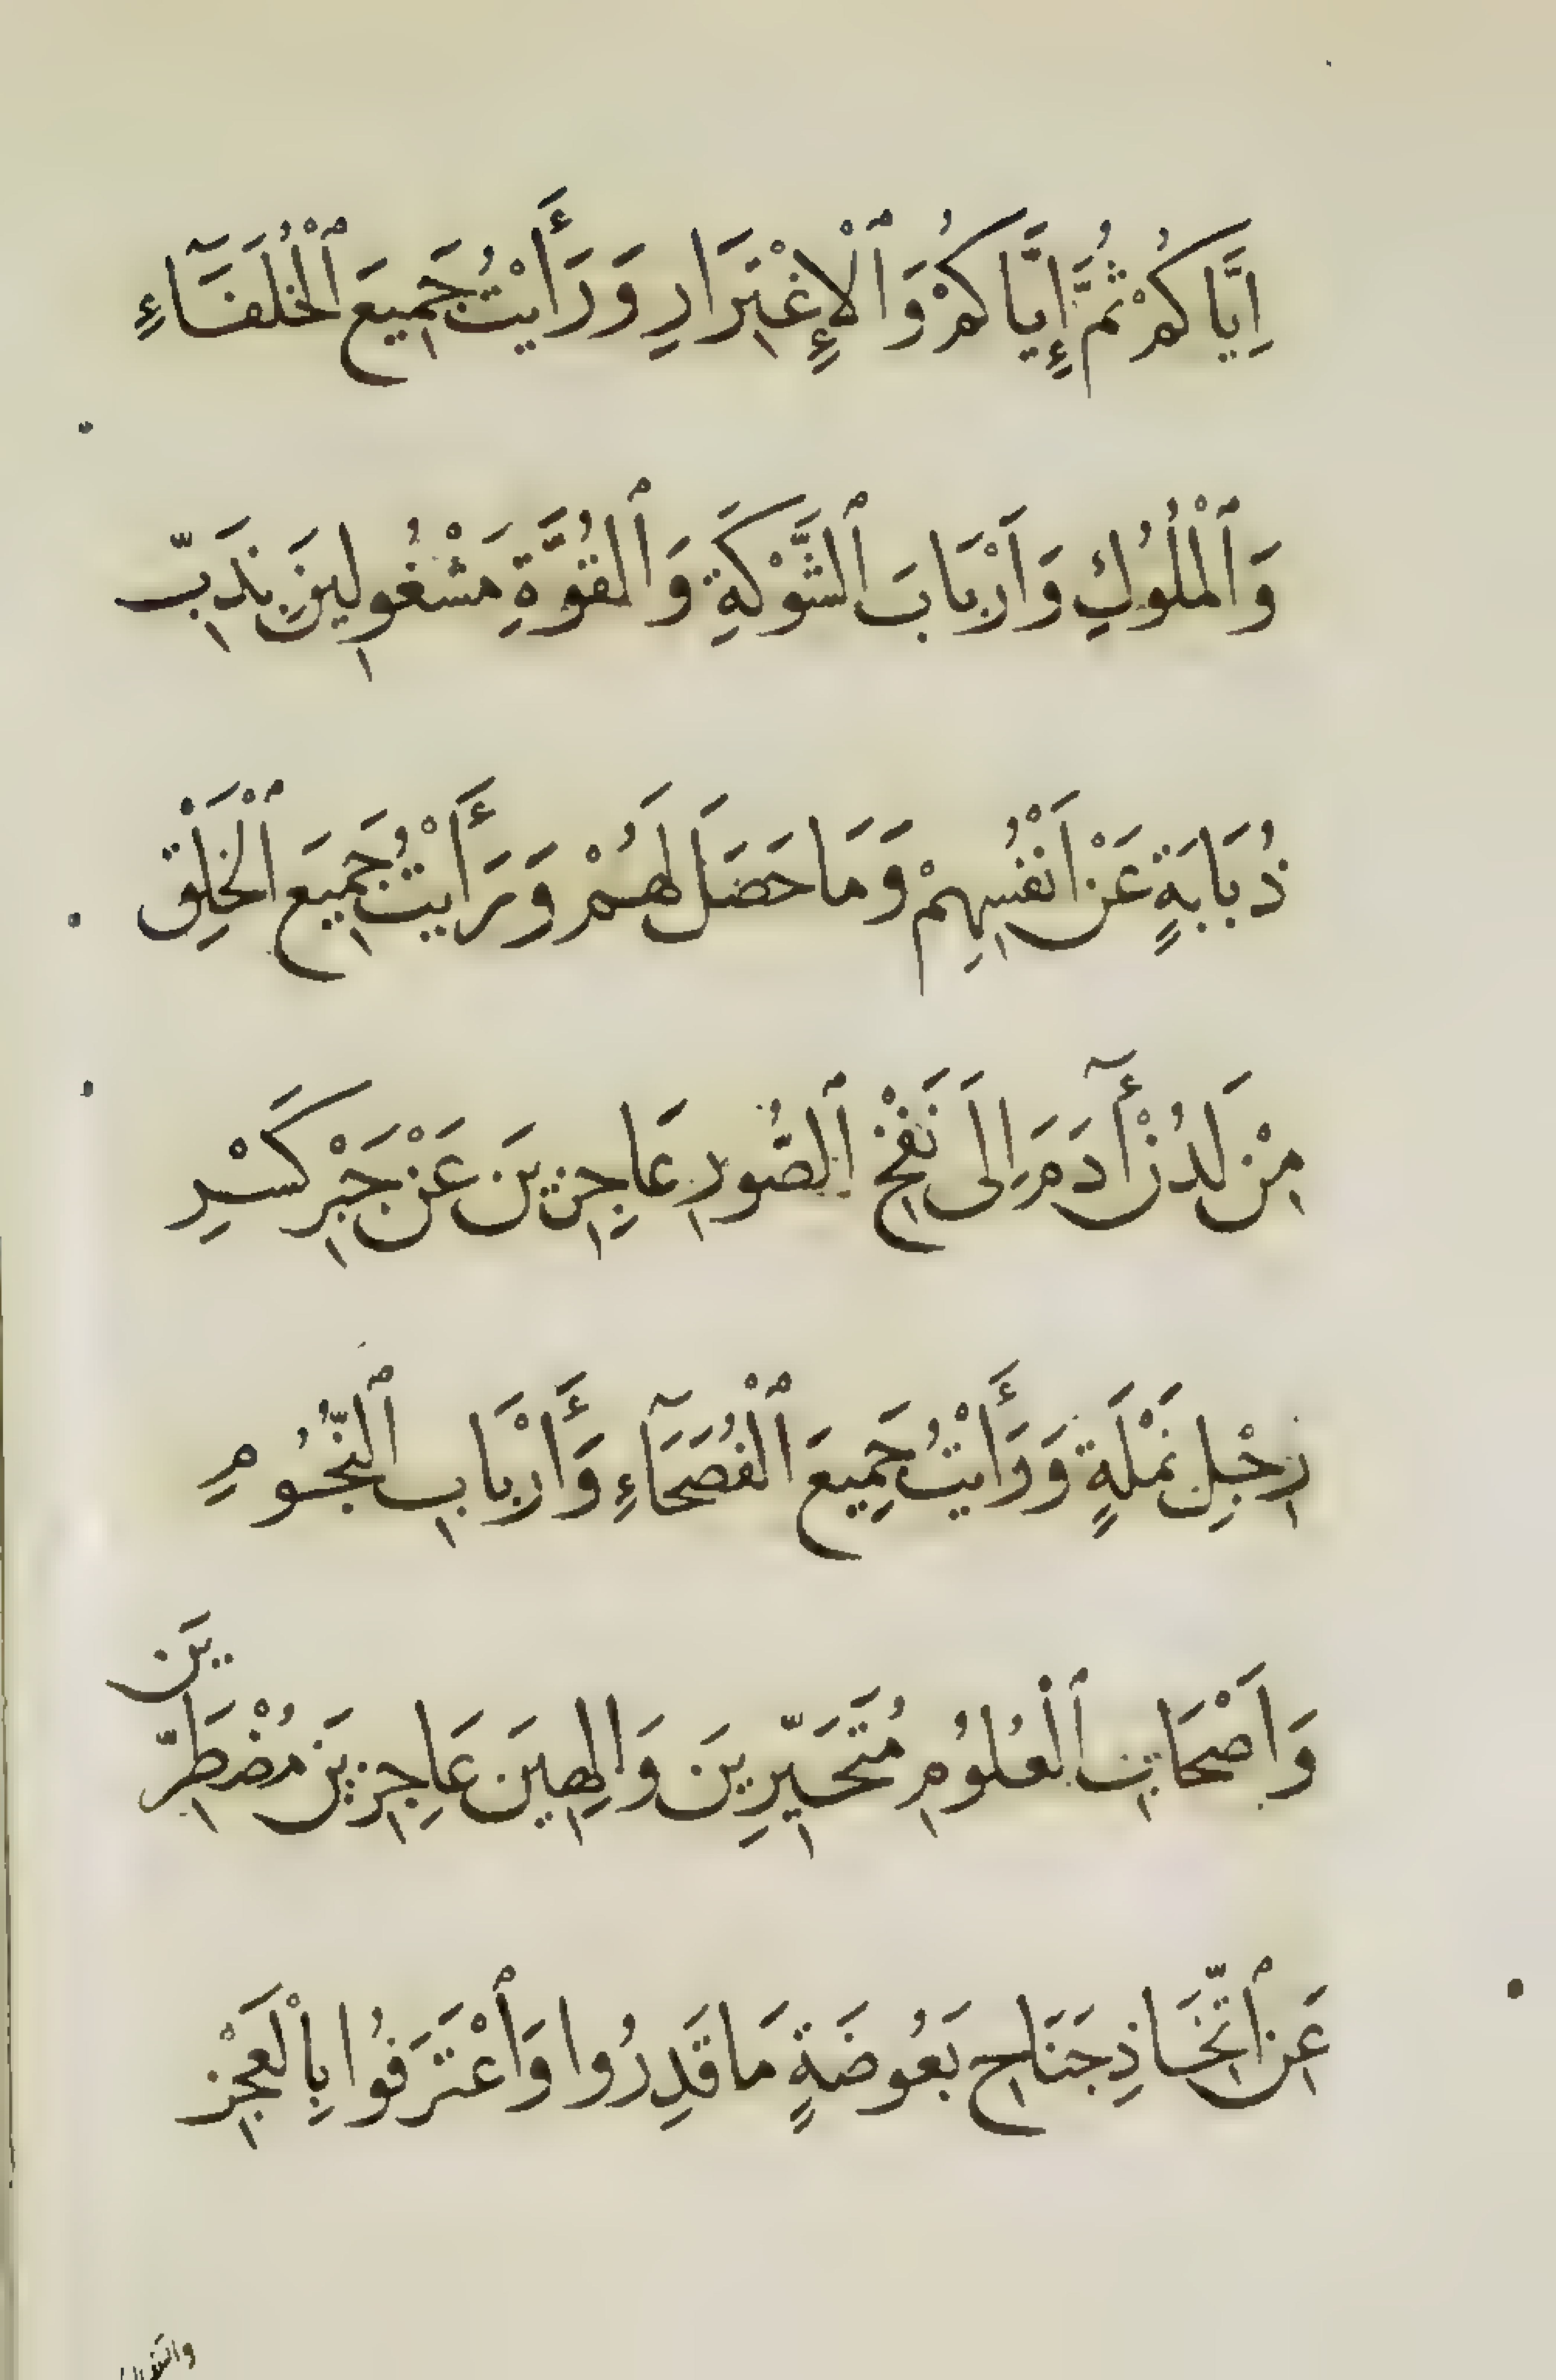 اِيَّاكُمْ ثُمَّ إِيَّاكُمْ وَٱلْإِغْتِرَارِ وَرَأَيْتُ جَمِيعَ ٱلْخُلَفَآءِ
وَٱلْمُلُوكِ وَاَرْبَابَ ٱلشَّوْكَةِ وَٱلقُوَّةِ مَشْغُولِينَ بِذَبِّ
ذُبَابَةٍ عَنْ اَنْفُسِهِمْ وَمَا حَصَلَ لَهُمْ وَرَأَيْتُ جَمِيعَ ٱلْخَلْقِ
مِنْ لَدُنْ أٓدَمَ اِلَى نَفْخِ ٱلصُّورِ عَاجِزِينَ عَنْ جَبْرِ كَسْرِ
رِجْلِ نَمْلَةٍ وَرَأَيْتُ جَمِيعَ ٱلْفُصَحَآءِ وَأَرْبَابِ ٱلنُّجُومِ
وَاَصْحَابِ ٱلْعُلُومِ مُتَحَيِّرِينَ وَالِهِينَ عَاجِزِينَ مُضْطَرِّينَ
عَنِ ٱتِّخَاذِ جَنَاحِ بَعُوضَةٍ مَا قَدِرُوا وَٱعْتَرَفُوا بِالْعَجْزِ